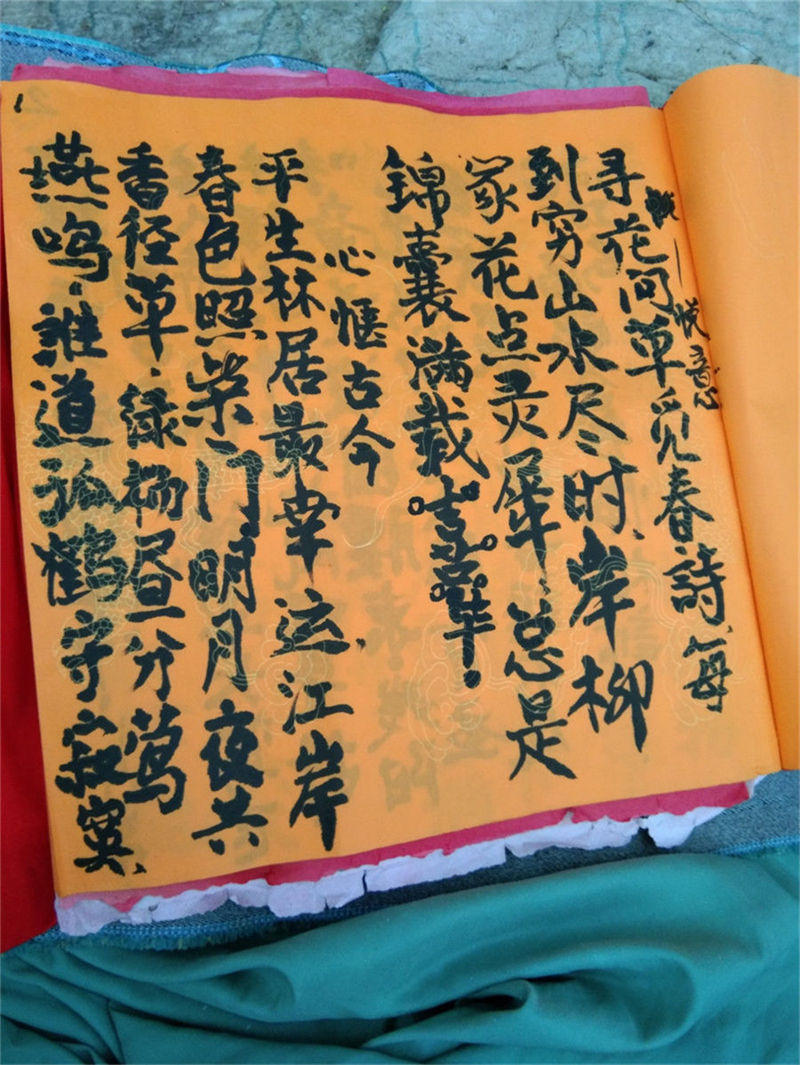 一悦意
寻花问草觅春、詩、每
到穷山水尽时、岸柳
冢花点灵犀、总是
锦囊满载
心惬古今
平生林居最幸运、江岸
春色照柴门、明月夜共
香径草、绿杨昼分莺
燕鸣、誰道孤鹤守寂寞、